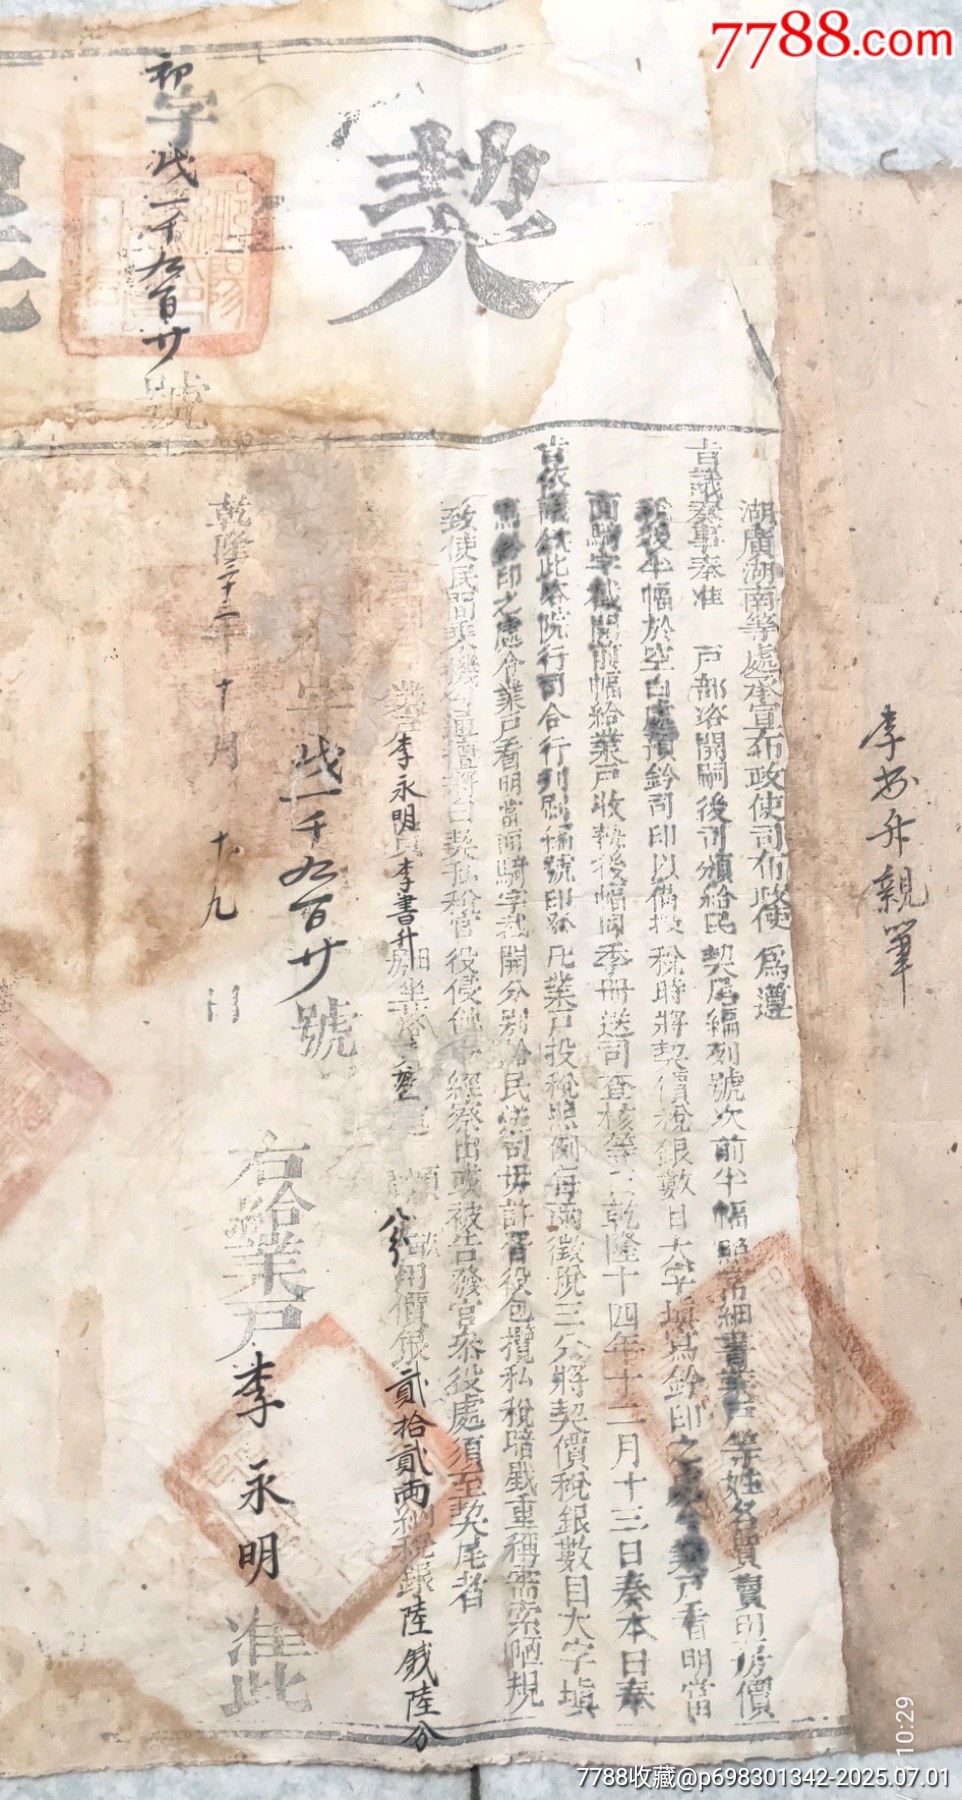 7788.com
契
初字茂一千九百廿
號
李書升親筆
湖廣湖南等處承宣布政使司布政使 為遵
旨議奏事奉准 戶部咨開嗣後司頒給民契尾編列號次前半幅照常細書業戶等姓名買賣田房價
後半幅於空白處預鈐司印以備投稅時將契價稅銀數目大字填寫鈐印之處令業戶看明當
面騎字截開前幅給業戶收執後幅同季冊送司查核等 乾隆十四年十二月十三日奏本日奉
旨依議欽此咨院行司合行刊刷編號印 凡業戶投稅照例每兩徵稅三分將契價稅銀數目大字填
寫鈐印之處令業戶看明當面騎字裁開分別給民送司毋許胥役包攬私稅暗戳重稱需索陋規
致使民間 將白契私稅 役侵 經察出或被告發官參役處須至契尾者
業戶李永明買李書升 八分 用價銀貳拾貳兩納稅銀陸錢陸分
字茂一千九百廿號
右給業戶李永明 准此
乾隆三十三年十月十九日
10:29
7788收藏@p698301342-2025.07.01